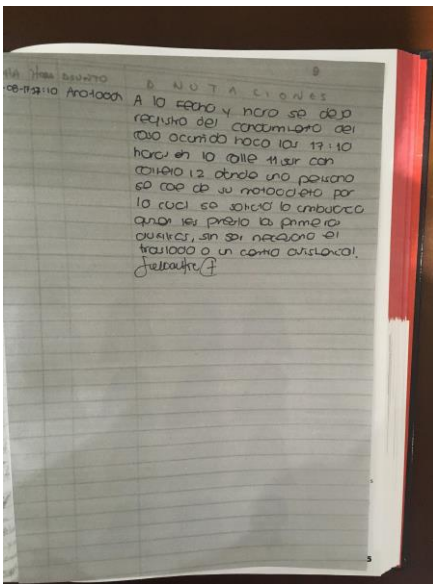 Hora ASUNTO
D NUTACIONES 9
-08-17:10 Anotación A la fecha y hora se deja
registro del conocimiento del
caso ocurrido hoco las 17:10
horas en la calle 11 sur con
carrera 12 donde una persona
se cae de su motocicleta por
lo cual se solicito la ambulancia
quien les presto los primeros
auxilios, sin ser necesario el
traslado a un centro asistencial.
5